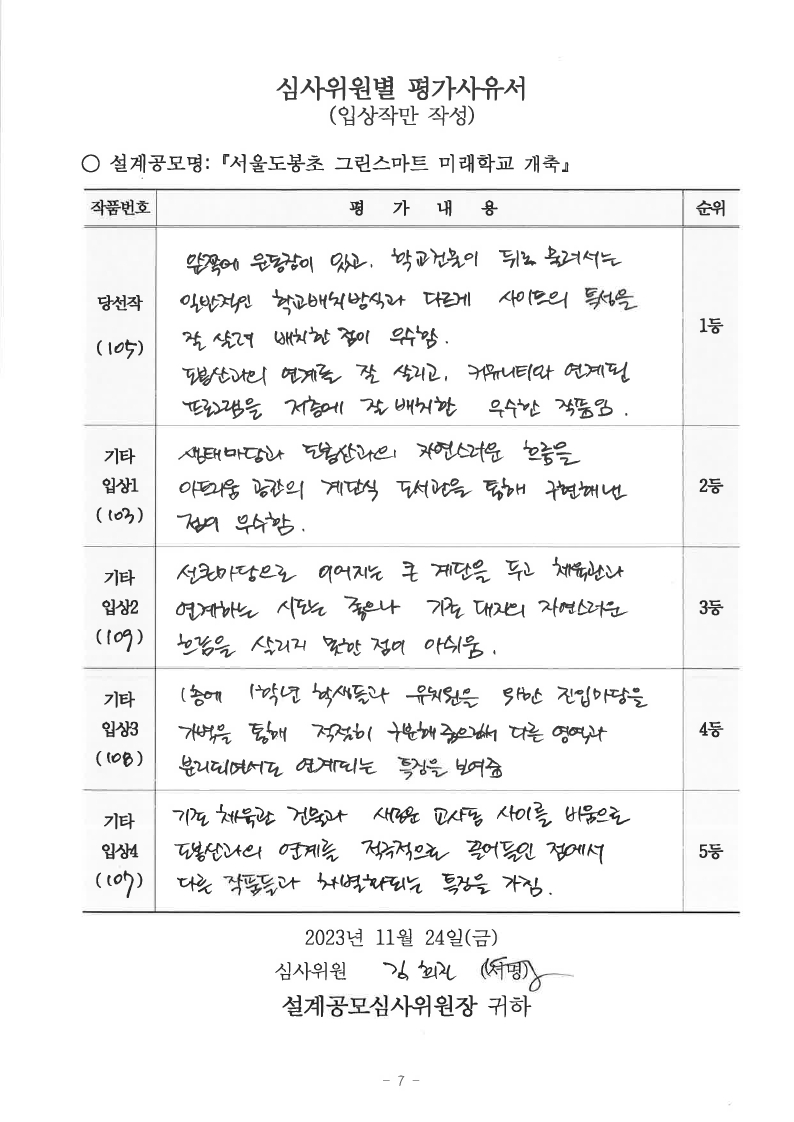 심사위원별 평가사유서
(입상작만 작성)
○ 설계공모명: 『서울도봉초 그린스마트 미래학교 개축』
작품번호 평 가 내 용 순위
당선작
(105)
앞쪽에 운동장이 있고, 학교건물이 뒤로 물러서는
일반적인 학교배치방식과 다르게 사이트의 특성을
잘 살려 배치한 점이 우수함.
도봉산과의 연계를 잘 살리고, 커뮤니티와 연계된
프로그램을 저층에 잘 배치한 우수한 작품임.
1등
기타
입상1
(103)
생태마당과 도봉산과의 자연스러운 흐름을
아뜨리움 공간의 계단식 도서관을 통해 구현해낸
점이 우수함.
2등
기타
입상2
(109)
선큰마당으로 이어지는 큰 계단을 두고 체육관과
연계하는 시도는 좋으나 기존 대지의 자연스러운
흐름을 살리지 못한 점이 아쉬움.
3등
기타
입상3
(108)
1층에 1학년 학생들과 유치원을 위한 진입마당을
가벽을 통해 적절히 구분해 줌으로써 다른 영역과
분리되면서도 연계되는 특징을 보여줌
4등
기타
입상4
(107)
기존 체육관 건물과 새로운 교사동 사이를 비움으로
도봉산과의 연계를 적극적으로 끌어들인 점에서
다른 작품들과 차별화되는 특징을 가짐.
5등
2023년 11월 24일(금)
심사위원 김 희진 (서명)
설계공모심사위원장 귀하
- 7 -